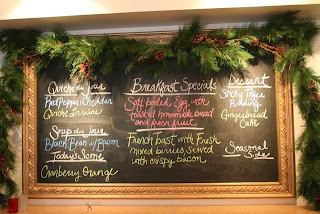 Quiche du Jour
Red Pepper Cheddar
Quiche Lorraine
Soup du Jour
Black Bean w/ Bacon
Today's Scone
Cranberry Orange
Breakfast Specials
Soft boiled Egg with
toasted homemade bread
and fresh fruit
French toast with Fresh
mixed berries served
with crispy bacon
Dessert
Sticky Toffee
Pudding
Gingerbread
Cake
Seasonal
Side